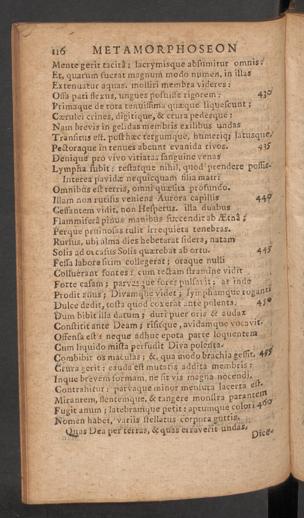 116 METAMORPHOSEON
Mente gerit tacitâ; lacrymisque absumitur omnis:
Et, quarum fuerat magnum modo numen, in illas
Extenuatur aquas. molliri membra videres:
Ossa pati flexus, ungues posuisse rigorem: 430
Primaque de tota tenuissima quæque liquescunt;
Cærulei crines, digitique, & crura pedesque:
Nam brevis in gelidas membris exilibus undas
Transitus est. post hæc tergumque, humerique latusque,
Pectoraque in tenues abeunt evanida rivos. 435
Denique pro vivo vitiatas sanguine venas
Lympha subit: restatque nihil, quod prendere possis.
Interea pavidæ nequicquam filia matri
Omnibus est terris, omni quæsita profundo.
Illam non rutilis veniens Aurora capillis 440
Cessantem vidit, non Hesperus. illa duabus
Flammifera pinus manibus succendit ab Ætna;
Perque pruinosas tulit irrequieta tenebras.
Rursus, ubi alma dies hebetarat sidera, natam
Solis ad occasus Solis quærebat ab ortu. 445
Fessa labore sitim collegerat; oraque nulli
Colluerant fontes: cum tectam stramine vidit
Forte casam; parvasque fores pulsavit: at inde
Prodit anus; Divamque videt; lymphamque roganti
Dulce dedit, tosta quod coxerat ante polenta. 450
Dum bibit illa datum; duri puer oris & audax
Constitit ante Deam; risitque, avidamque vocavit.
Offensa est: neque adhuc epota parte loquentem
Cum liquido mista perfudit Diva polenta.
Combibit os maculas; &, qua modo brachia gessit, 455
Crura gerit: cauda est mutatis addita membris:
Inque brevem formam, ne sit vis magna nocendi,
Contrahitur: parvaque minor mensura lacerta est.
Mirantem, flentemque, & tangere monstra parantem
Fugit anum; latebramque petit: aptumque colori 460
Nomen habet, variis stellatus corpora guttis.
Quas Dea per terras, & quas erraverit undas,
Dice-